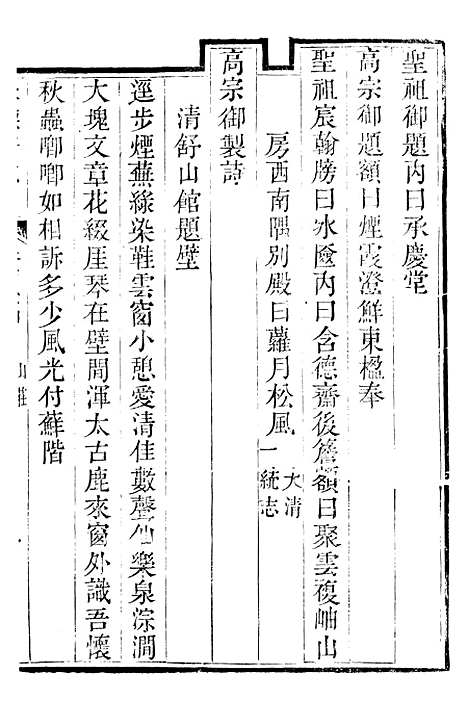 聖祖御題內曰承慶堂
高宗御題額曰煙霞澄鮮東楹奉
聖祖宸翰牓曰水㕔內曰含德齋後簷額曰聚雲複岫山
房西南隅別殿曰蘿月松風大清一統志
高宗御製詩
清舒山館題壁
逕步煙蕪綠染鞋雲窗小憩愛清佳數聲仙樂泉淙澗
大塊文章花綴厓琴在壁間渾太古鹿來窗外識吾懷
秋蟲唧唧如相訴多少風光付蘚階
山莊